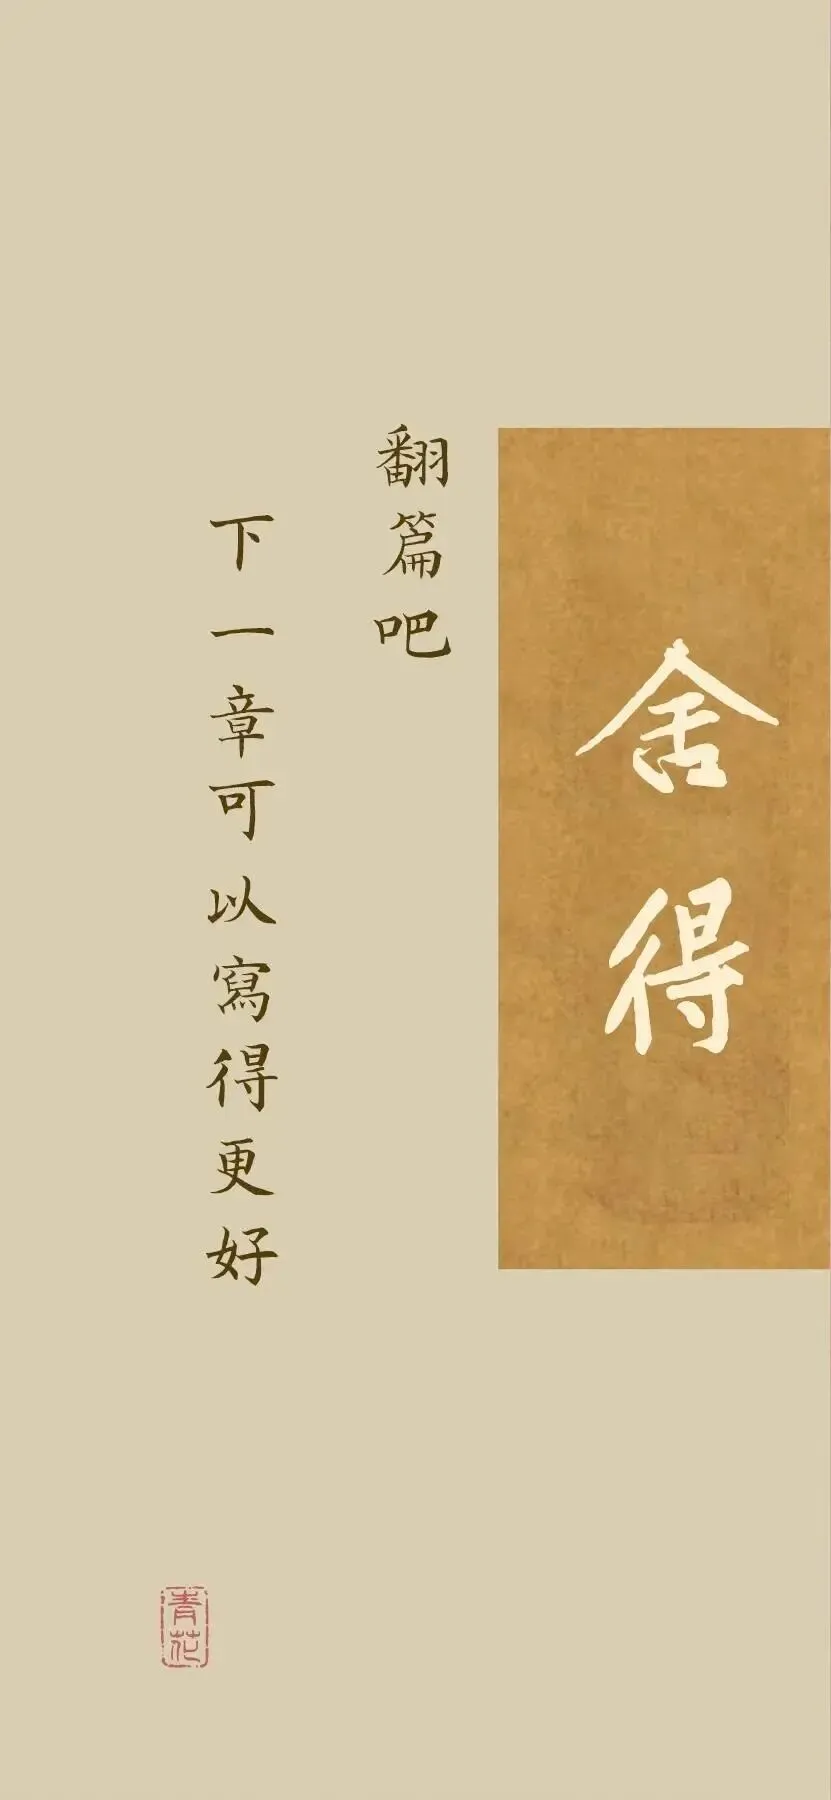 舍得
翻篇吧
下一章可以寫得更好
青花